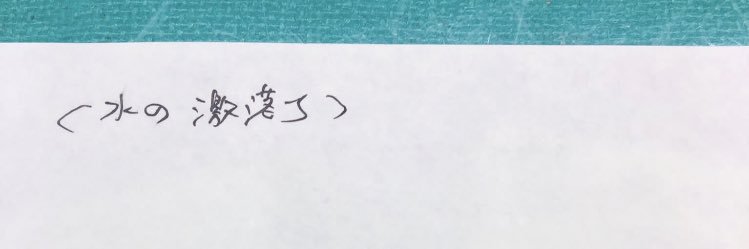 (水の激落ち)